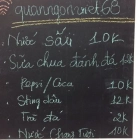 quanngon.net68
- Nước sấu 10K
- Sữa chua đánh đá 12k
Pepsi/Coca 10K
Sting dâu 12K
Trà đá 2K
Nước 10K